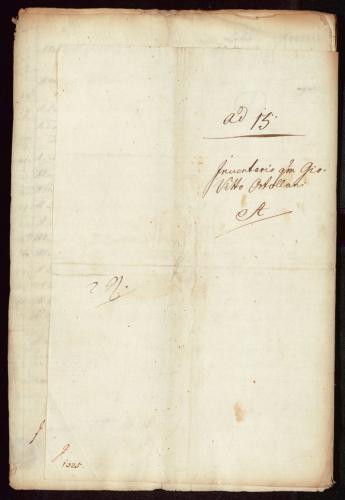 ad 15.
Inventario qm Gio.
Vitto Ortollani
A
1325.